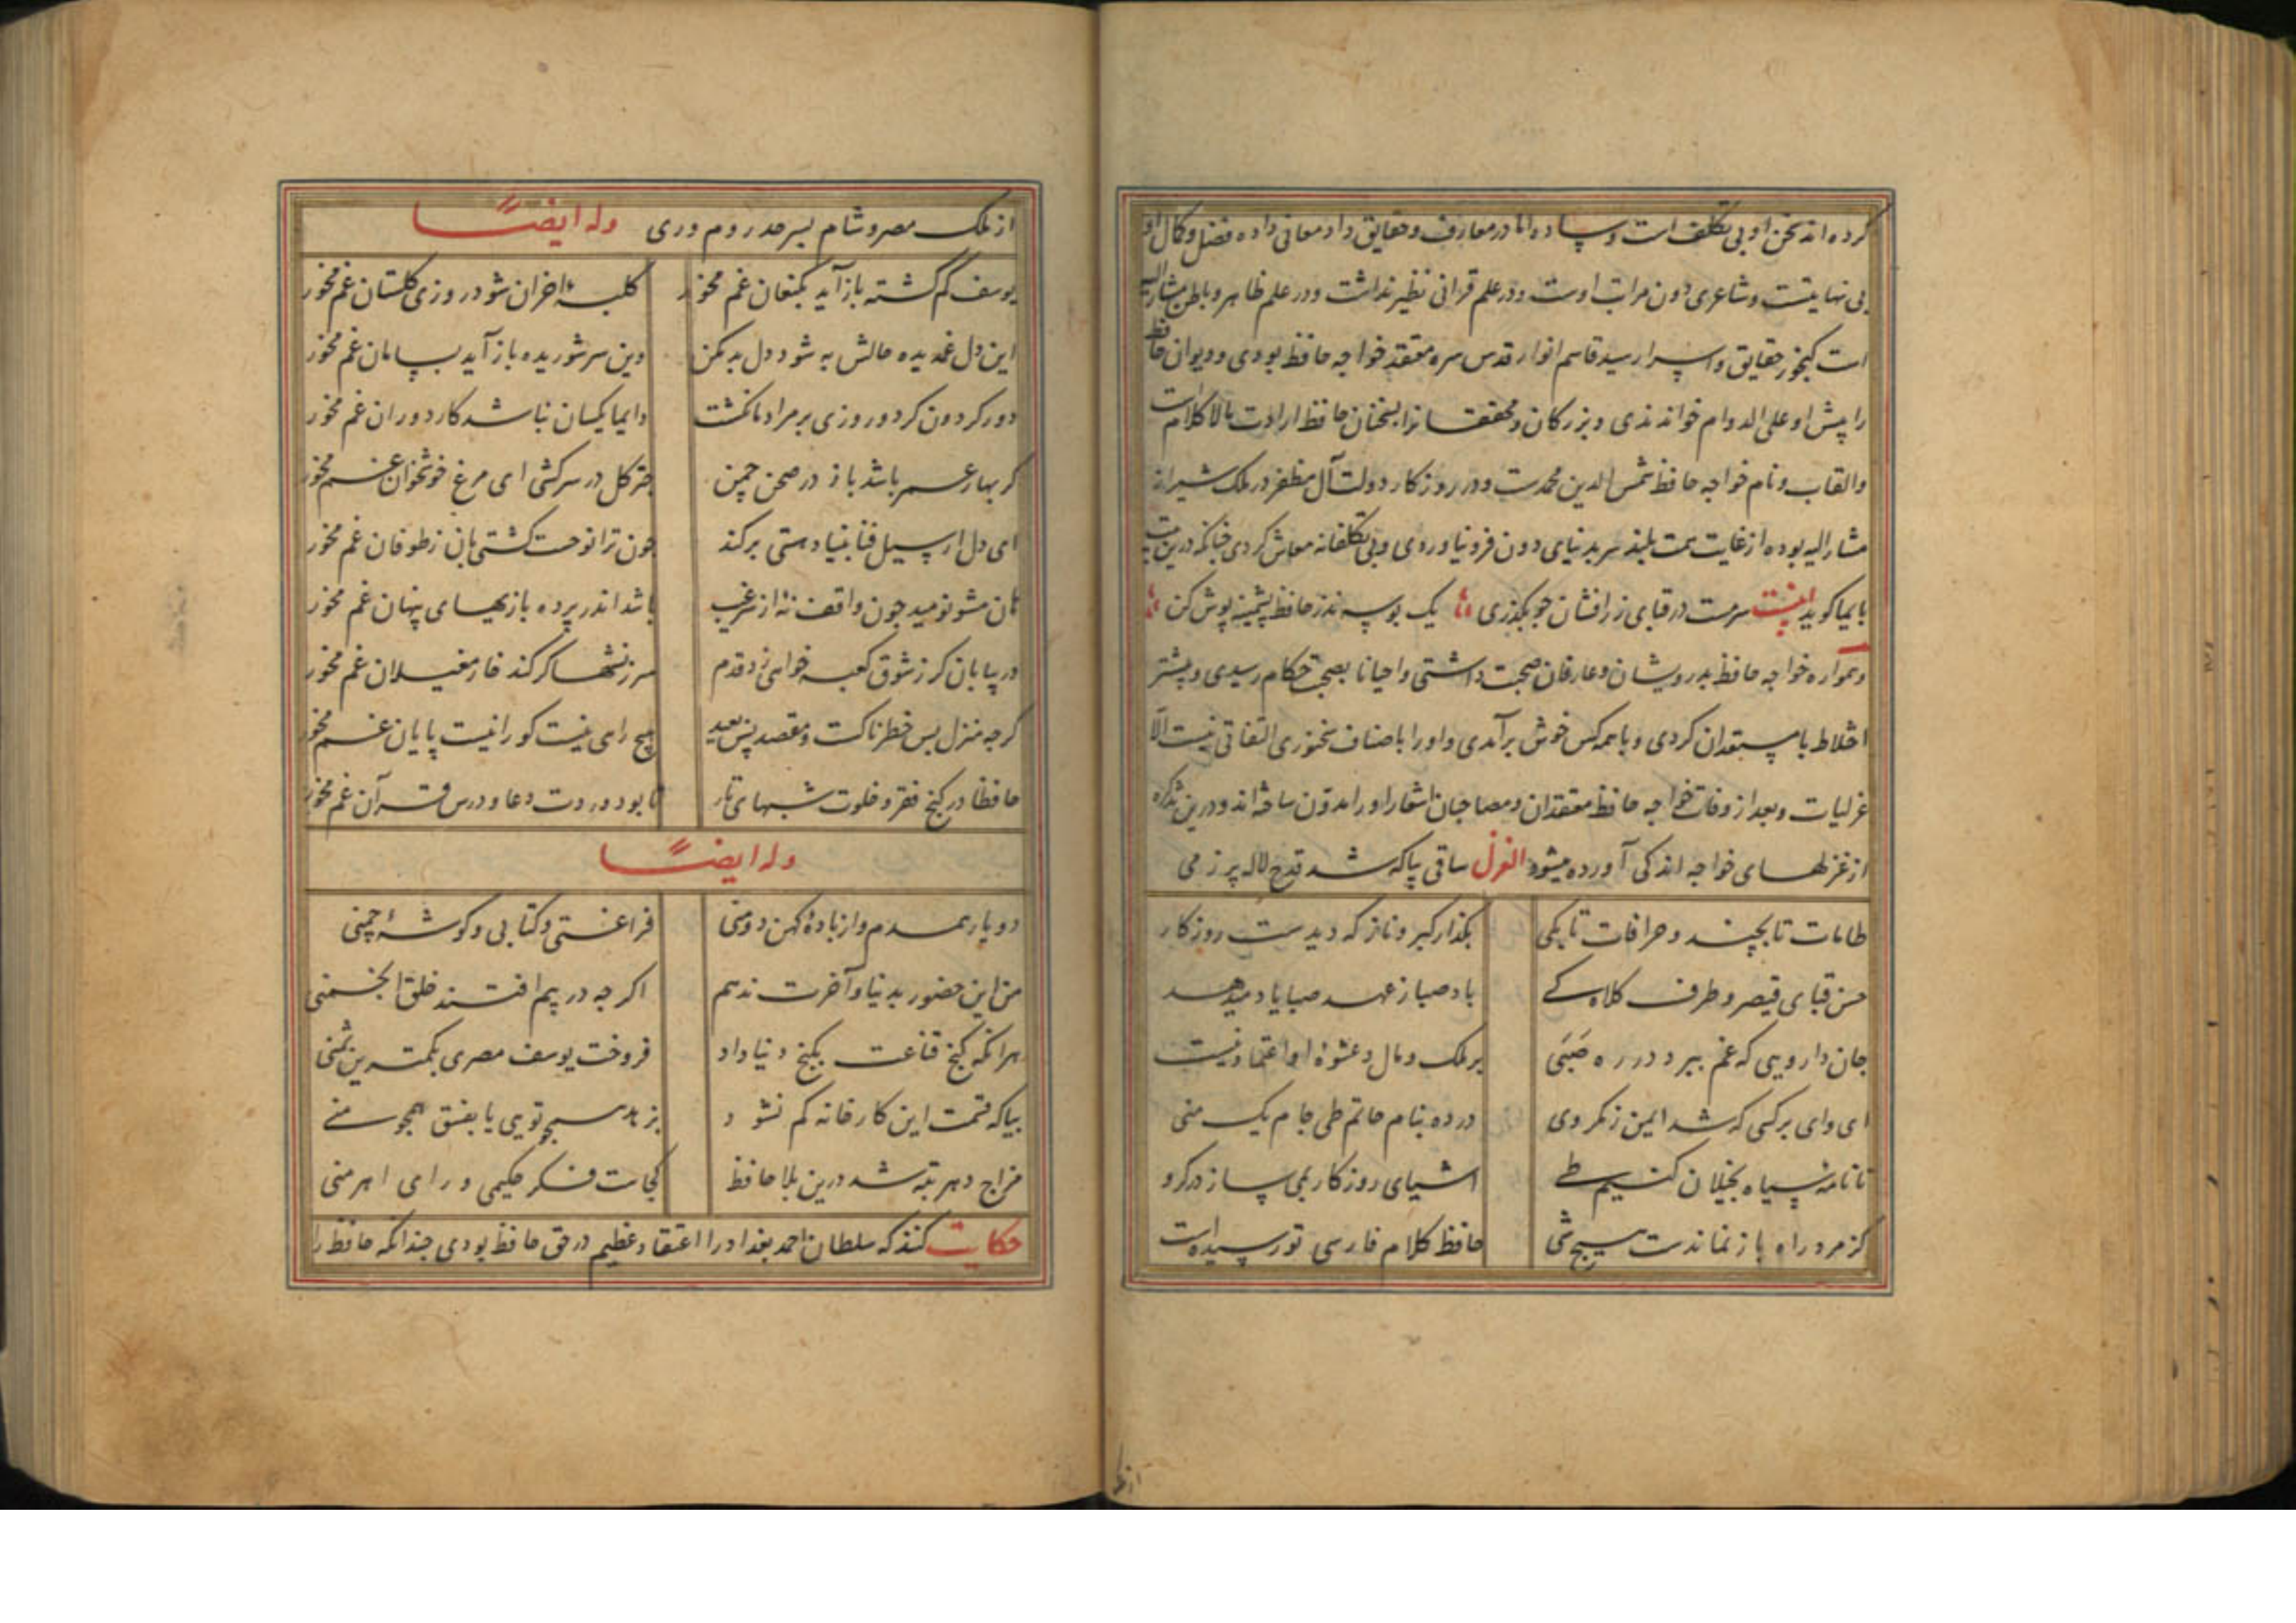 کرده اند سخن او بی تکلف است و ساده اما در معارف و حقایق داد معانی داده فضل و کمال او
بی نهایتست و شاعری دون مراتب اوست و در علم قرانی نظیر نداشت و در علم ظاهر و باطن مشار الیه
است کنجور حقایق و اسرار سید قاسم انوار قدس سره معتقد خواجه حافظ بودی و دیوان حافظ
را پیش او علی الدوام خواندندی و بزرکان و محققانرا بسخنان حافظ ارادت مالا کلام است
والقاب و نام خواجه حافظ شمس الدین محمدست و در روزکار دولت آل مظفر در ملک شیراز
مشار الیه بوده از غایت همت بلند سر بدنیای دون فرو نیاوردی و بی تکلفانه معاش کردی چنانکه درین بیت
بایما کوید بیت سرمست در قبای زرافشان جو بکذری یک بوسه نذر حافظ پشمینه پوش کن
و همواره خواجه حافظ بدرویشان و عارفان صحبت داشتی و احیانا بصحبت حکام رسیدی و پیشتر
اختلاط با مستعدان کردی و با همه کس خوش برآمدی و او را باصناف سخنوری التفاتی نیست الا
غزلیات و بعد از وفات خواجه حافظ معتقدان و مصاحبان اشعار او را مدون ساخته اند و درین تذکره
از غزلهای خواجه اندکی آورده میشود الغزل ساقی بیا که شد قدح لاله پر ز می
طامات تا بچند و خرافات تا بکی بکذار کبر و ناز که دیدست روزکار
حسن قبای قیصر و طرف کلاه کے باد صبا ز عهد صبا یاد میدهد
جان دارویی که غم ببرد در ده صبی بر ملک و مال و عشوه او اعتماد نیست
ای وای بر کسی که شد ایمن ز مکر وی در ده بنام حاتم طی جام یک منی
تا نامه سیاه بخیلان کنیم طے اشیای روزکار بمی ساز در کرو
کز مرد راه باز نماندست هیچ شی حافظ کلام فارسی تو رسیده است
از ملک مصر و شام بسرحد روم و ری وله ایضًا
یوسف کم کشته باز آید بکنعان غم مخور کلبه احزان شود روزی کلستان غم مخور
این دل غمدیده حالش به شود دل بد مکن وین سر شوریده باز آید بسامان غم مخور
دور کردون کر دو روزی بر مراد ما نکشت دایما یکسان نباشد کار دوران غم مخور
کر بهار عمر باشد باز در صحن چمن چتر کل در سر کشی ای مرغ خوشخوان غم مخور
ای دل ار سیل فنا بنیاد هستی برکند جون ترا نوحست کشتی بان ز طوفان غم مخور
هان مشو نومید جون واقف نه از سر غیب باشد اندر پرده بازیهای پنهان غم مخور
در بیابان کر ز شوق کعبه خواهی زد قدم سرزنشها کر کند خار مغیلان غم مخور
کرجه منزل بس خطرناکست و مقصد بس بعید هیچ راهی نیست کو را نیست پایان غم مخور
حافظا در کنج فقر و خلوت شبهای تار تا بود وردت دعا و درس قرآن غم مخور
وله ایضًا
دو یار همدم و از باده کهن دو منی فراغتی و کتابی و کوشه چمنی
من این حضور بدنیا و آخرت ندهم اکرجه در پیم افتند خلق انجمنی
هرانکه کنج قناعت بکنج دنیا داد فروخت یوسف مصری بکمترین ثمنی
بیا که قسمت این کارخانه کم نشود بزهد همچو تویی یا بفسق همجو منے
مزاج دهر تبه شد درین بلا حافظ کجاست فکر حکیمی و رای اهرمنی
حکایت کنند که سلطان احمد بغداد را اعتقاد عظیم در حق حافظ بودی جندانکه حافظ را